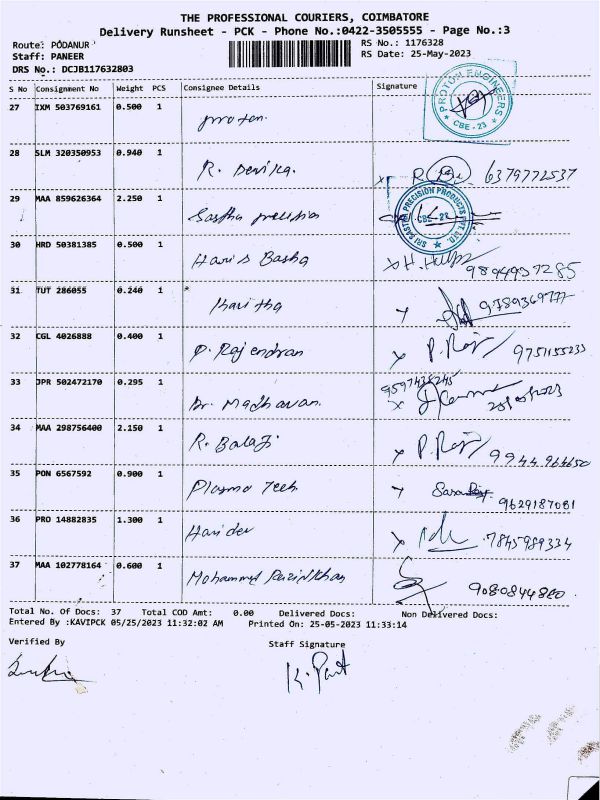 THE PROFESSIONAL COURIERS, COIMBATORE
Delivery Runsheet - PCK - Phone No.:0422-3505555 - Page No.:3
Route: PODANUR RS No.: 1176328
Staff: PANEER RS Date: 25-May-2023
DRS No.: DCJB117632803
S No Consignment No Weight PCS Consignee Details Signature
27 IXM 503769161 0.500 1 proton. PROTON ENGINEERS CBE-23
28 SLM 320350953 0.940 1 R. Devika. x 6379772537
29 MAA 859626364 2.250 1 Sastha precision SRI SASTHA PRECISION PRODUCTS PVT. LTD. CBE-23
30 HRD 50381385 0.500 1 Haris Basha x 9894937285
31 TUT 286055 0.240 1 * Kavitha x 9789369777
32 CGL 4026888 0.400 1 P. Rajendran x P. Raj 9751155233
33 JPR 502472170 0.295 1 Dr. Madhavan. 9597435245 x
34 MAA 298756400 2.150 1 R. Balaji x P. Raj 9944964650
35 PON 6567592 0.900 1 Plasma Tech x 9629187081
36 PRO 14882835 1.300 1 x 7845989334
37 MAA 102778164 0.600 1 Mohammed 9080844860
Total No. Of Docs: 37 Total COD Amt: 0.00 Delivered Docs: Non Delivered Docs:
Entered By :KAVIPCK 05/25/2023 11:32:02 AM Printed On: 25-05-2023 11:33:14
Verified By Staff Signature